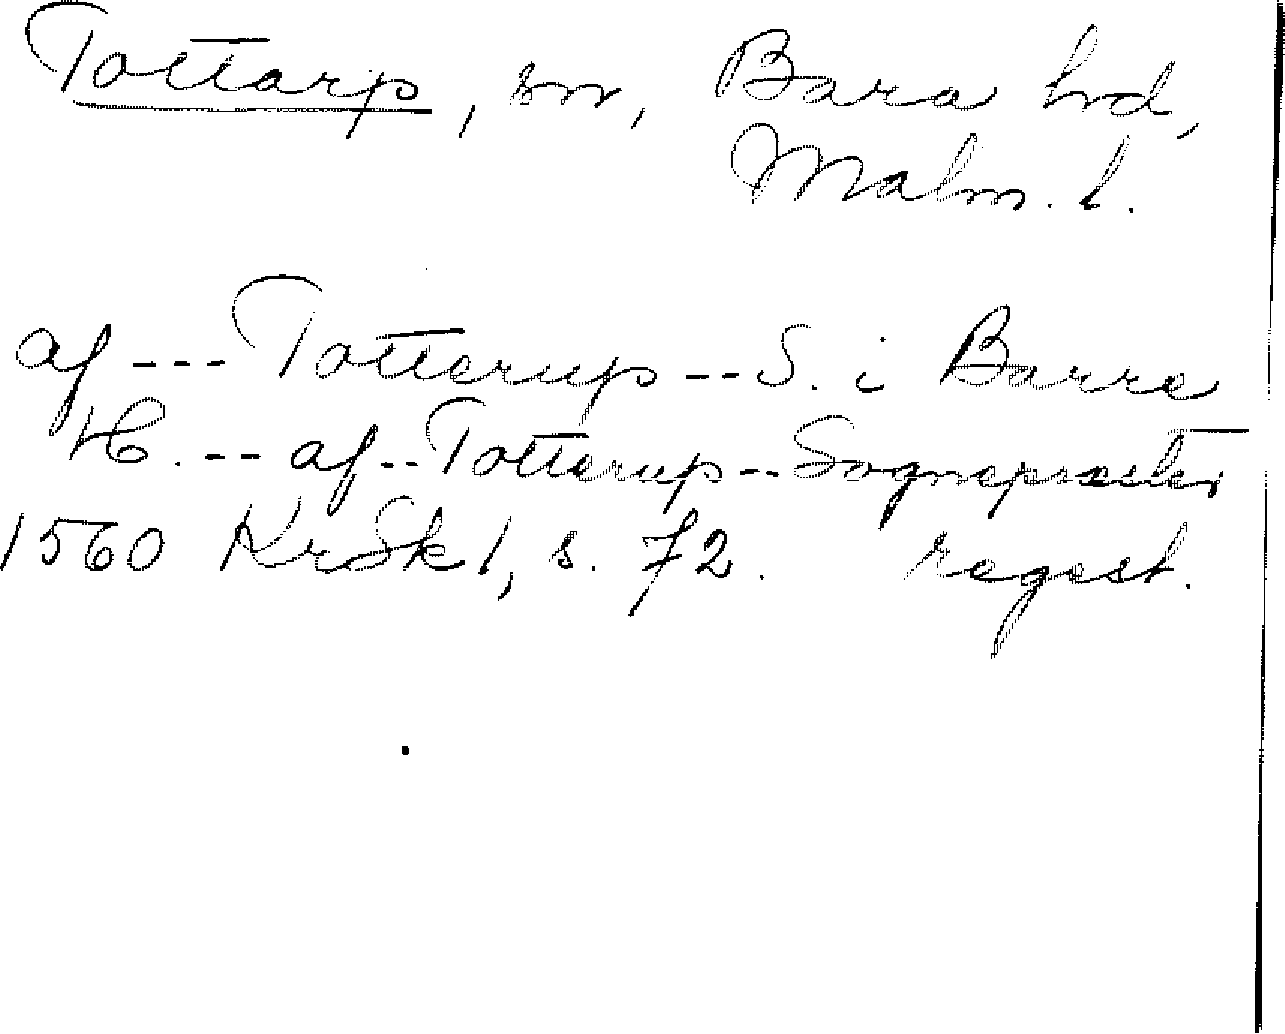 Tottarp, sn, Bara hd,
Malm. l.
af --- Totterup -- S. i Barre
H. --- af -- Totterup -- Sognepræster
1560 KrSk 1, s. 72. regest.